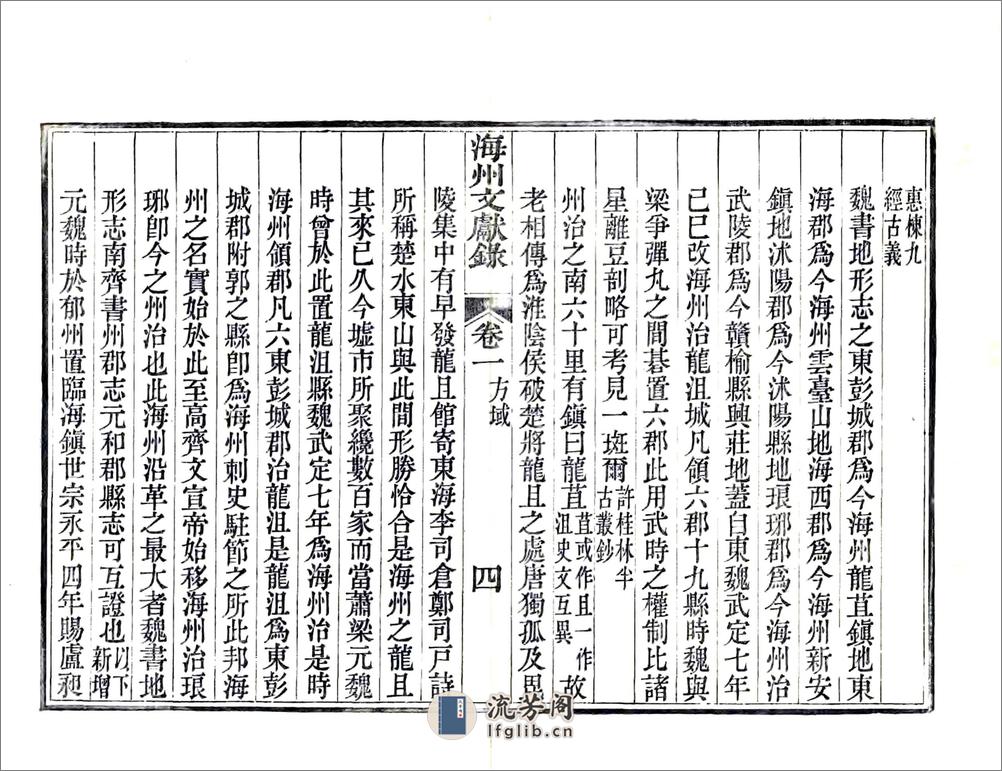 惠棟九
經古義
魏書地形志之東彭城郡爲今海州龍苴鎭地東
海郡爲今海州雲臺山地海西郡爲今海州新安
鎭地沭陽郡爲今沭陽縣地琅琊郡爲今海州治
武陵郡爲今贛榆縣興莊地蓋自東魏武定七年
已巳改海州治龍沮城凡領六郡十九縣時魏與
梁爭彈丸之間碁置六郡此用武時之權制比諸
星離豆剖略可考見一斑爾許桂林半
古叢鈔
州治之南六十里有鎭曰龍苴苴或作且一作
沮史文互異故
老相傳爲淮陰侯破楚將龍且之處唐獨孤及毘
海州文獻錄
卷一
方域
四
陵集中有早發龍且館寄東海李司倉鄭司戸詩
所稱楚水東山與此間形勝恰合是海州之龍且
其來已久今墟市所聚纔數百家而當蕭梁元魏
時曾於此置龍沮縣魏武定七年爲海州治是時
海州領郡凡六東彭城郡治龍沮是龍沮爲東彭
城郡附郭之縣卽爲海州刺史駐節之所此邦海
州之名實始於此至高齊文宣帝始移海州治琅
琊卽今之州治也此海州沿革之最大者魏書地
形志南齊書州郡志元和郡縣志可互證也以下
新增
元魏時於郁州置臨海鎭世宗永平四年賜盧昶
流芳阁
lfglib.cn